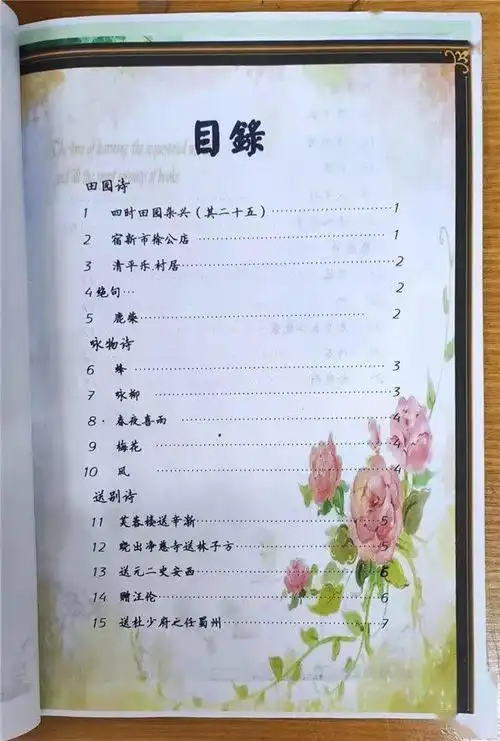 目錄
The love of learning, the sequestered
and all the sweet serenity of books
田园诗
1 四时田园杂兴（其二十五） 1
2 宿新市徐公店 1
3 清平乐.村居 2
4绝句… 2
5 鹿柴 2
咏物诗
6 蜂 3
7 咏柳 3
8· 春夜喜雨 4
9 梅花 4
10 风 4
送别诗
11 芙蓉楼送辛渐 5
12 晓出净慈寺送林子方 5
13 送元二史安西 6
14 赠汪伦 6
15 送杜少府之任蜀州 7